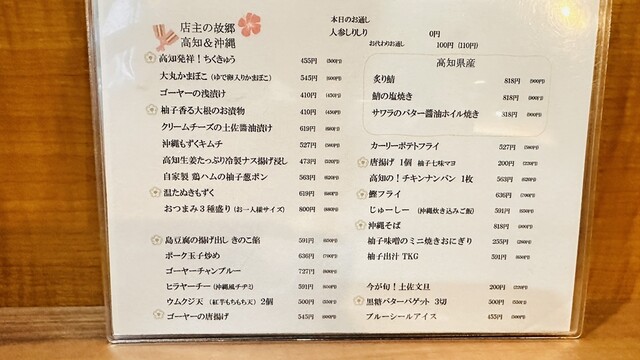 店主の故郷
高知&沖縄
高知発祥！ちくきゅう 455円 (500円)
大丸かまぼこ（ゆで卵入りかまぼこ） 545円 (600円)
ゴーヤーの浅漬け 410円 (450円)
柚子香る大根のお漬物 410円 (450円)
クリームチーズの土佐醤油漬け 619円 (680円)
沖縄もずくキムチ 527円 (580円)
高知生姜たっぷり冷製ナス揚げ浸し 473円 (520円)
自家製 鶏ハムの柚子葱ポン 563円 (620円)
温たぬきもずく 619円 (680円)
おつまみ3種盛り（お一人様サイズ） 800円 (880円)
島豆腐の揚げ出し きのこ餡 591円 (650円)
ポーク玉子炒め 636円 (700円)
ゴーヤーチャンプルー 727円 (800円)
ヒラヤーチー（沖縄風チヂミ） 591円 (650円)
ウムクジ天（紅芋もちもち天）2個 500円 (550円)
ゴーヤーの唐揚げ 545円 (600円)
本日のお通し
人参しりしり 0円
お代わりお通し 100円 (110円)
高知県産
炙り鯖 818円 (900円)
鯖の塩焼き 818円 (900円)
サワラのバター醤油ホイル焼き 818円 (900円)
カーリーポテトフライ 527円 (580円)
唐揚げ 1個 柚子七味マヨ 200円 (220円)
高知の！チキンナンバン 1枚 563円 (620円)
鰹フライ 636円 (700円)
じゅーしー（沖縄炊き込みご飯） 591円 (650円)
沖縄そば 818円 (900円)
柚子味噌のミニ焼きおにぎり 255円 (280円)
柚子出汁 TKG 591円 (650円)
今が旬！土佐文旦 200円 (220円)
黒糖バターバゲット 3切 500円 (550円)
ブルーシールアイス 455円 (500円)